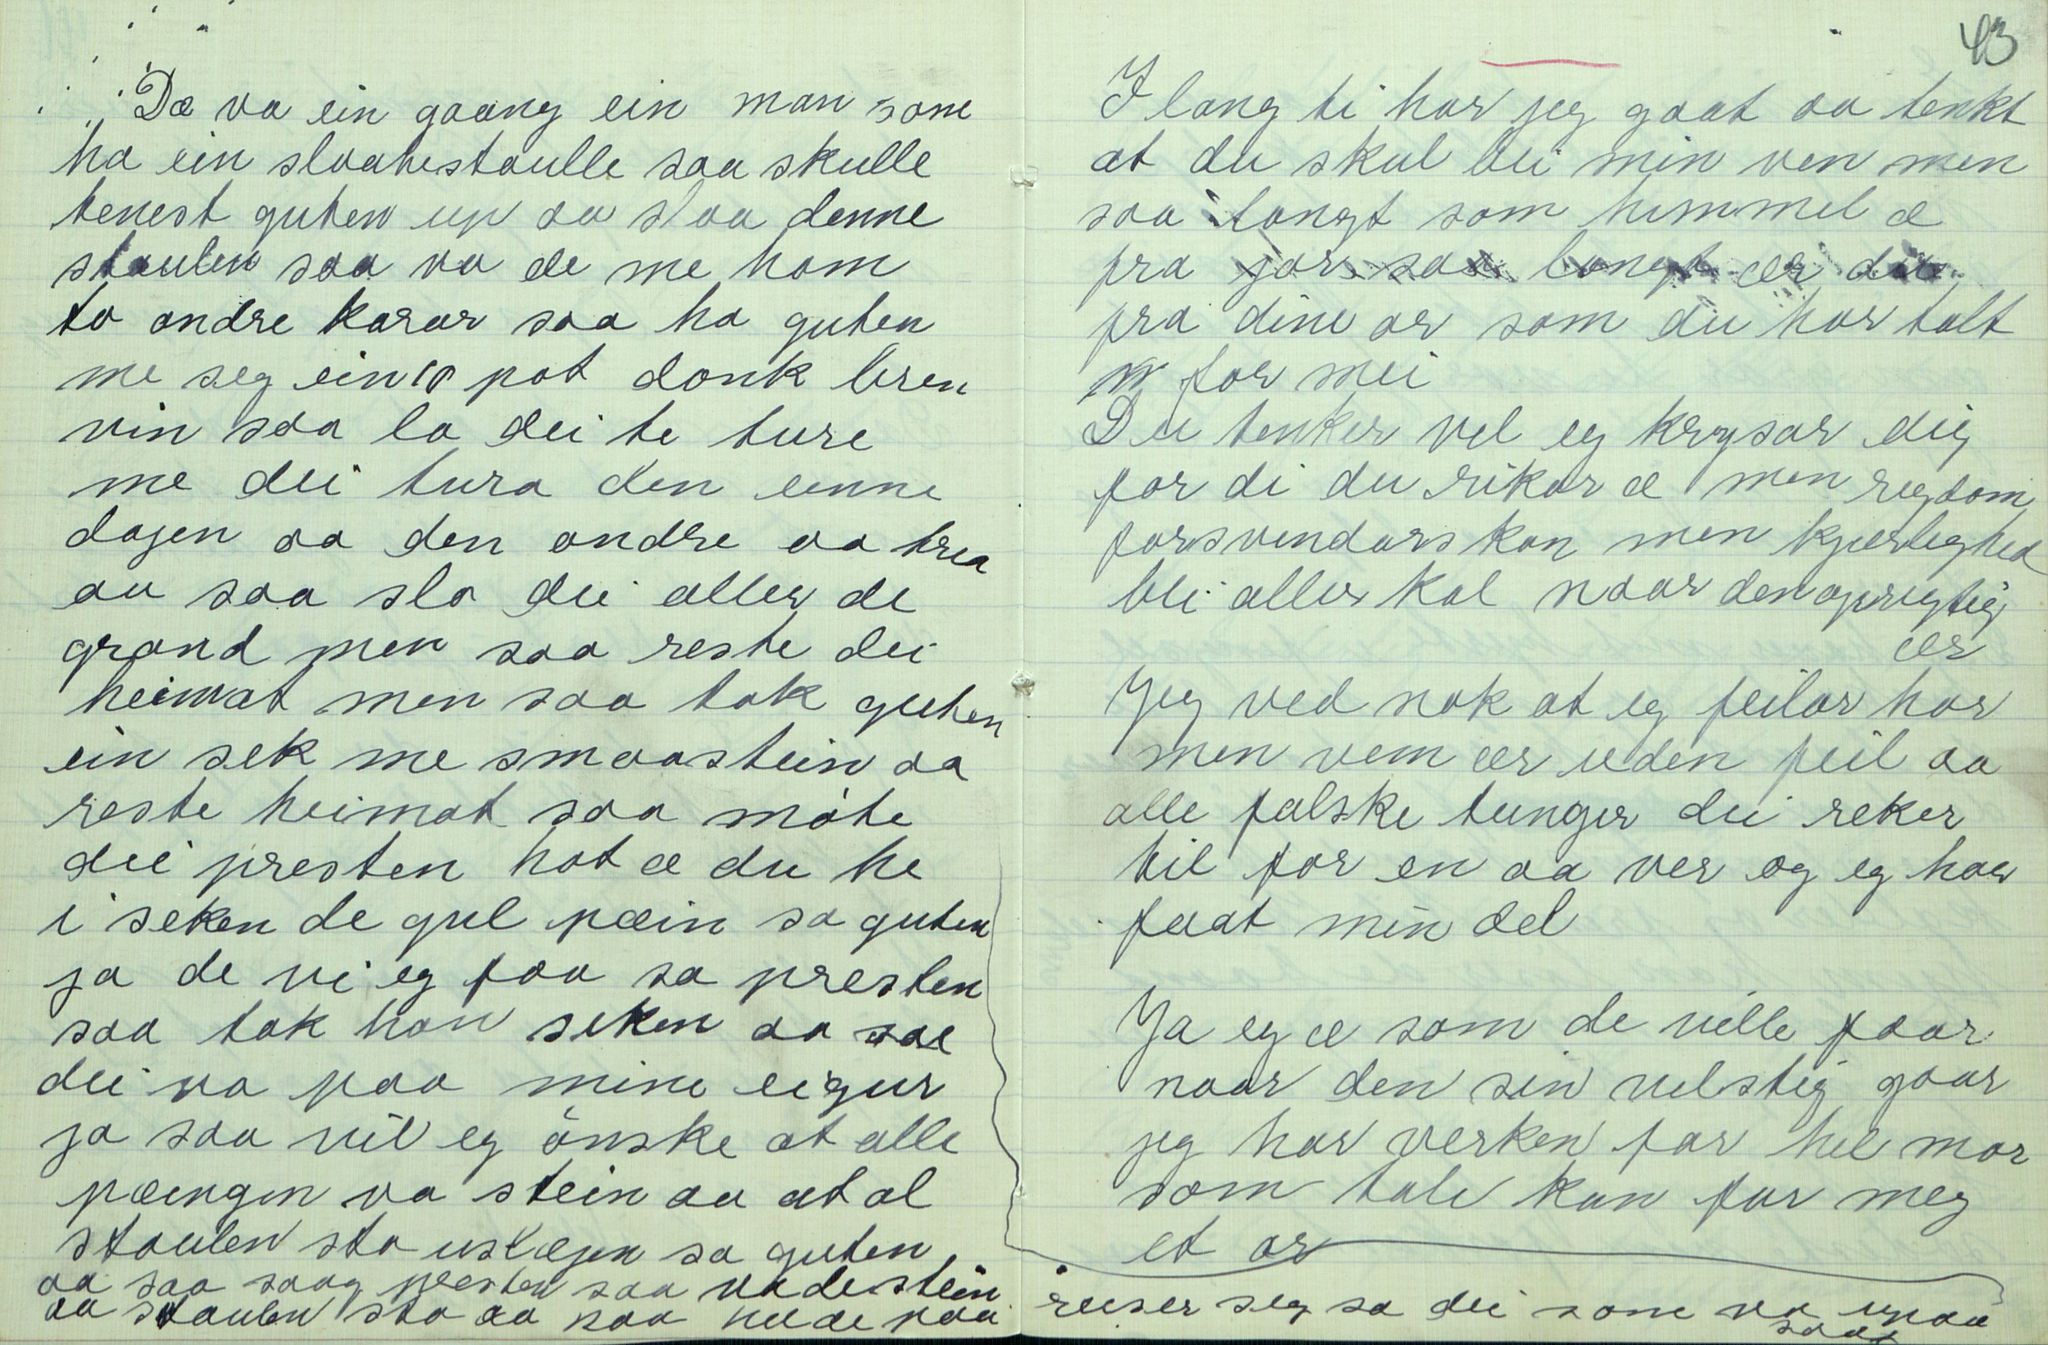 Dæ va ein gaang ein man some
ha ein slaatestaulle saa skulle
tenest guten up aa slaa denne
staulen saa va de me hom
to andre karar saa ha guten
me seg ein 10 pot donk bren
vin saa la dei te ture
me dei tura den einne
dagen aa den andre aa tria
aa saa slo dei aller de
grand men saa reste dei
heimat men saa tok guten
ein sek me smaastein aa
reste heimat saa møte
dei presten hot æ du he
i seken de gul pæin sa guten
ja de vi eg faa sa presten
saa tok han seken aa saae
dei va paa mine eigur
ja saa vil eg ønske at alle
pæingen va stein aa at al
staulen sto uslægen sa guten
aa saa saag presten saa va de stein
aa staulen sto aa saa hu de paa
43
I lang ti har jeg gaat aa tenkt
at du skul bli min ven men
saa langt som himmel æ
fra jor saa langt ær di
fra dine or som du har talt
for mei
Du tenker vel eg krysar dig
for di du rikar æ men rigdom
forsvindars kan men kjærlighed
bli aller kal naar den oprigtig
ær
Jeg ved nok at eg feilar har
men vem ær uden feil aa
alle falske tunger dei reker
til for en aa ver og eg har
faat min del
Ja eg æ som de ville faar
naar den sin vilstig gaar
jeg har verken far hel mor
som tale kan for meg
et or
reiser seg sa dei some va upaa
saag